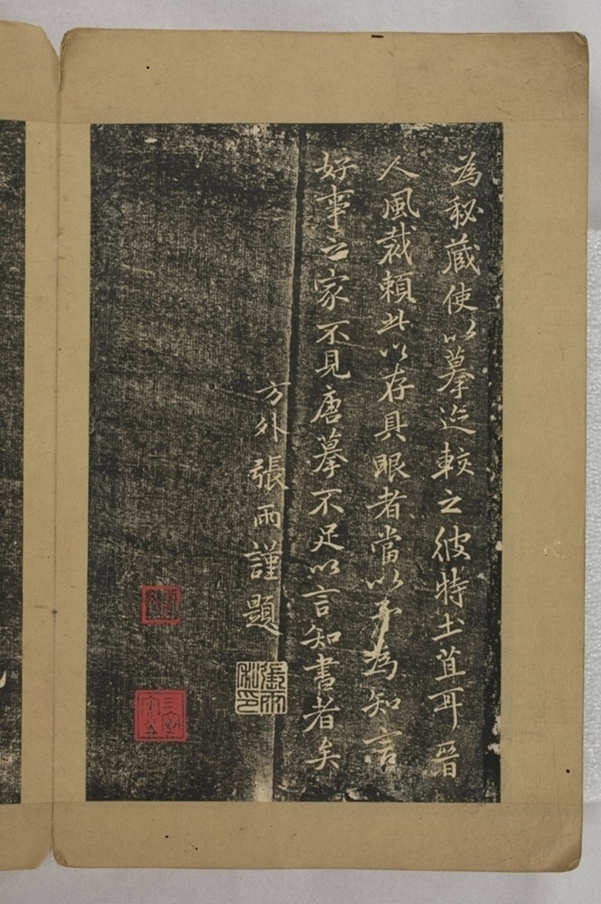 為秘藏使以摹迄較之彼特土苴耳晉
人風裁賴此以存具眼者當以予為知言
好事之家不見唐摹不足以言知書者矣
方外張雨謹題